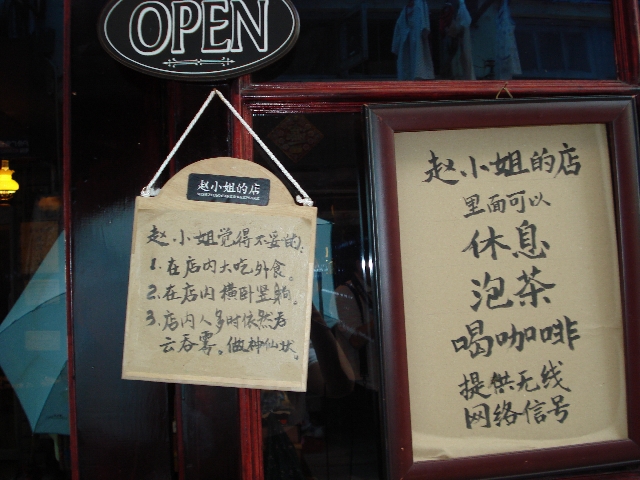 OPEN
赵小姐的店
赵小姐觉得不妥的:
1.在店内大吃外食。
2.在店内横卧竖躺。
3.店内人多时依然吞
云吞雾、做神仙状。
赵小姐的店
里面可以
休息
泡茶
喝咖啡
提供无线
网络信号